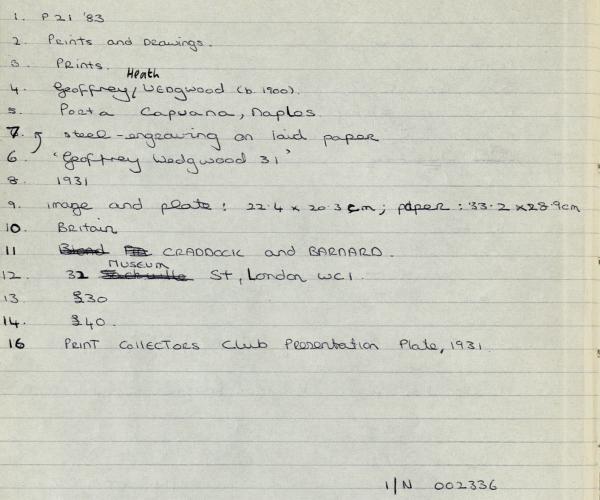 1. P 21 '83
2. Prints and Drawings.
3. Prints.
4. Geoffrey Heath Wedgwood (b. 1900).
5. Porta Capuana, Naples.
7. steel-engraving on laid paper
6 'Geoffrey Wedgwood 31'
8. 1931
9. image and plate: 22.4 x 20.3 cm; paper: 33.2 x 28.9cm
10. Britain
11 CRADDOCK and BARNARD.
12. 32 MUSEUM St, London WC1.
13 £30
14. £40.
16 PRINT COLLECTORS Club Presentation Plate, 1931.
1/N 002336